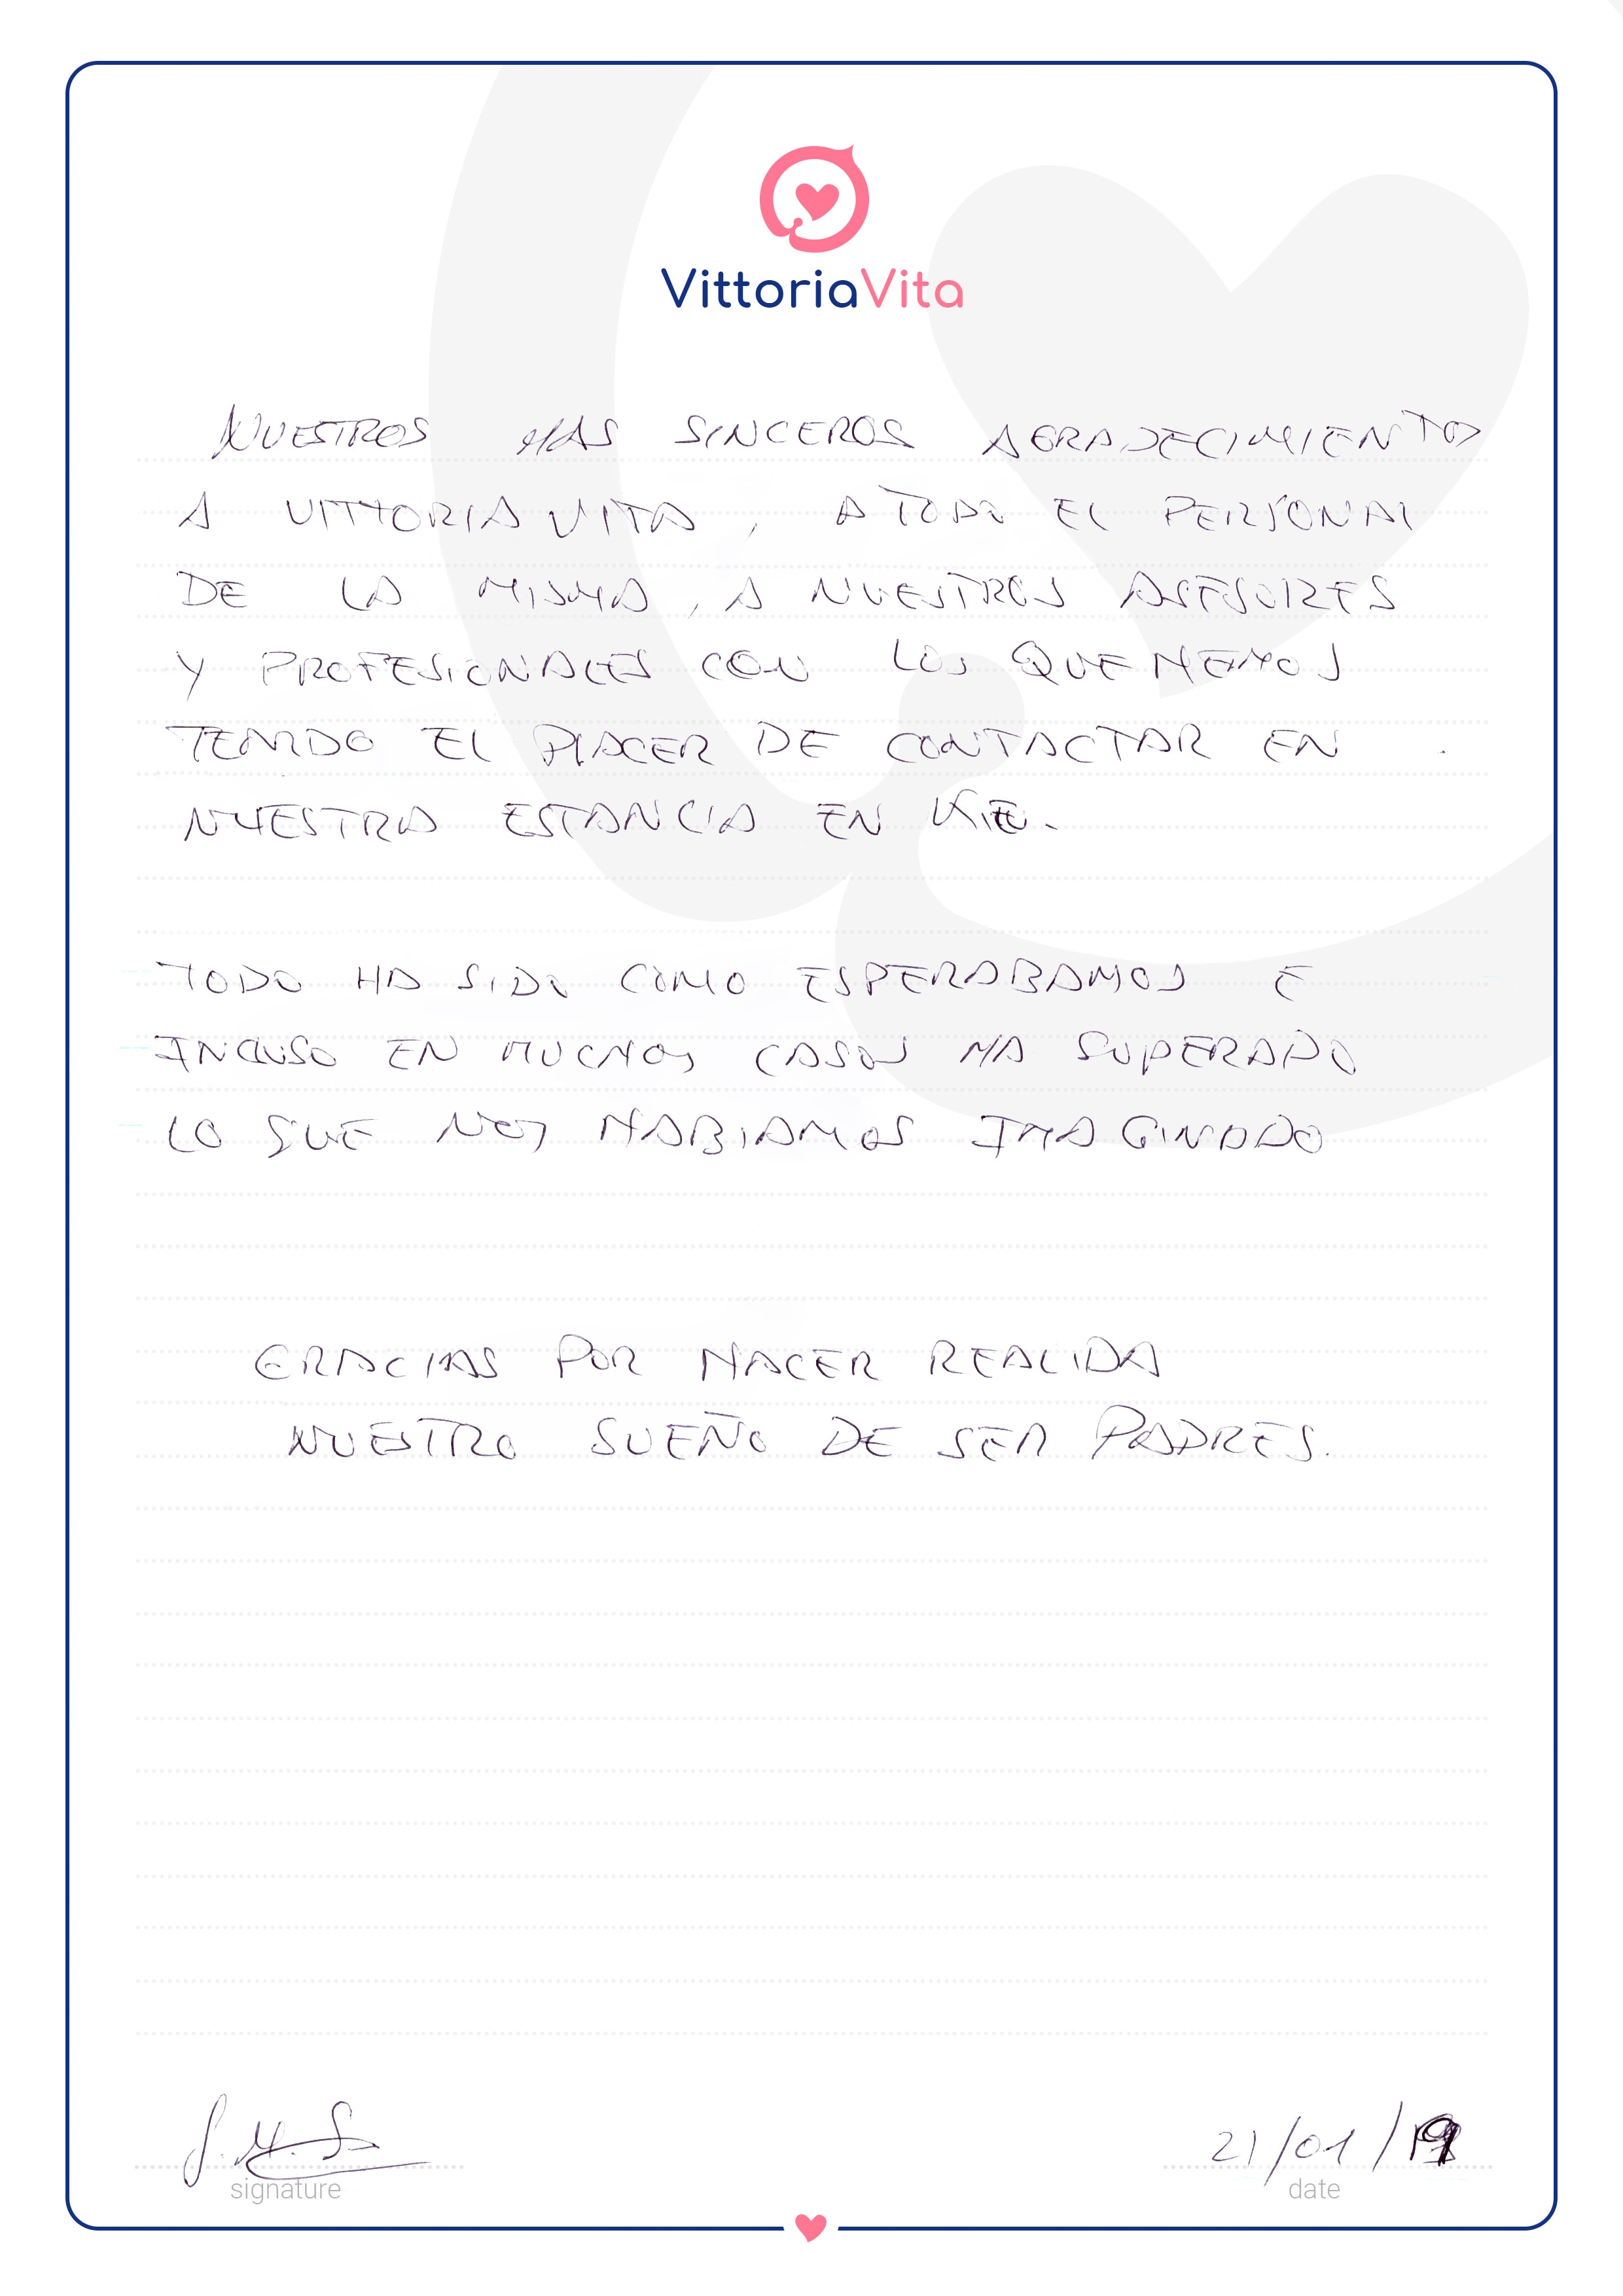 VittoriaVita
NUESTROS MAS SINCEROS AGRADECIMIENTOS
A VITTORIA VITA, A TODO EL PERSONAL
DE LA MISMA, A NUESTROS ASESORES
Y PROFESIONALES CON LOS QUE HEMOS
TENIDO EL PLACER DE CONTACTAR EN
NUESTRA ESTANCIA EN KIE.
TODO HA SIDO COMO ESPERABAMOS E
INCLUSO EN MUCHOS CASOS HA SUPERADO
LO QUE NOS HABIAMOS IMAGINADO
GRACIAS POR HACER REALIDA
NUESTRO SUEÑO DE SER PADRES.
21/01/19
signature
date